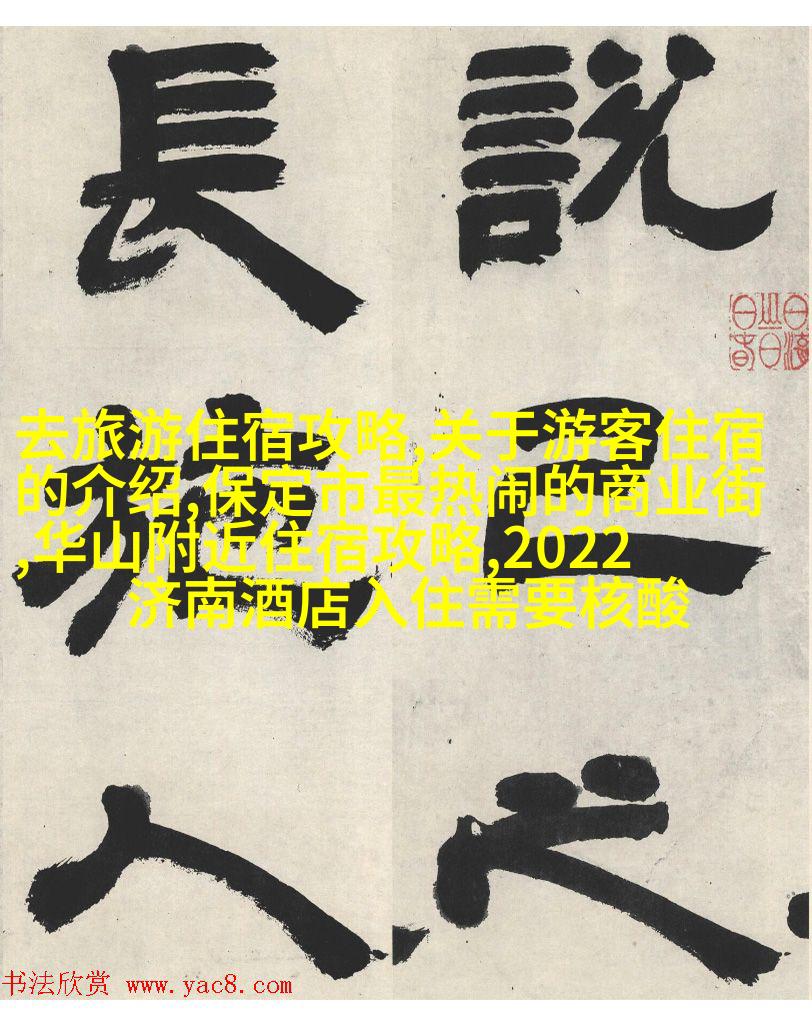 說己之
長施人
去旅游住宿攻略,关于游客住宿
的介绍,保定市最热闹的商业街
,华山附近住宿攻略,2022
济南酒店入住需要核酸
书法欣赏 www.yac8.com